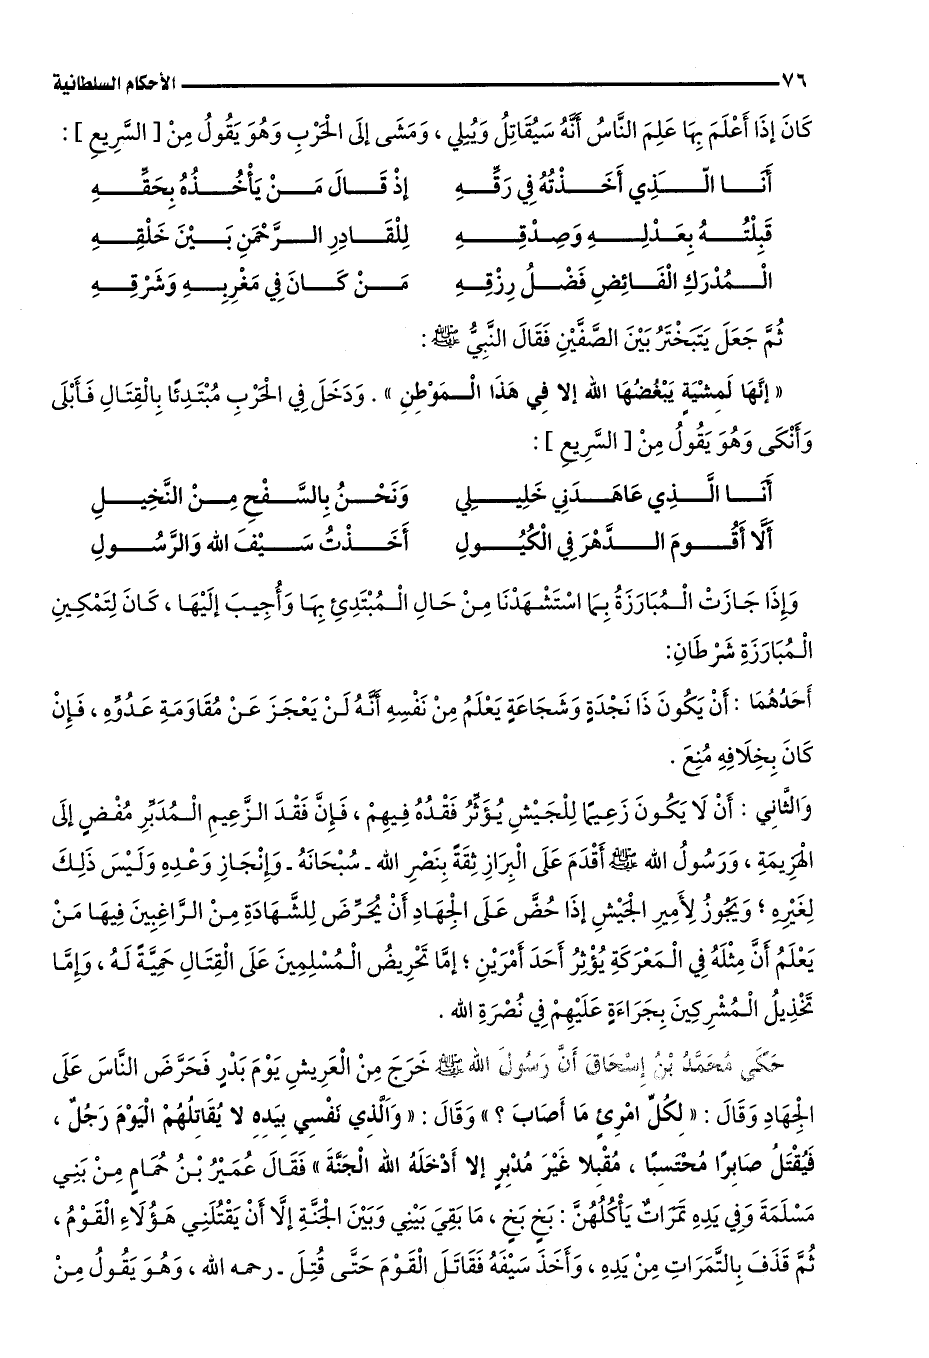 ٧٦ الأحكام السلطانية
كَانَ إذَا أَعْلَمَ بِهَا عَلِمَ النَّاسُ أَنَّهُ سَيُقَاتِلُ وَيُبِلِي ، وَمَشَى إلَى الْحَرْبِ وَهُوَ يَقُولُ مِنْ [ السَّرِيعِ ] :
أَنَـــا الَّـــذِي أَخَـــذْتُهُ فِي رَقِّـــهِ إذْ قَـــالَ مَـــنْ يَأْخُـــذُهُ بِحَقِّـــهِ
قَبِلْتُـــهُ بِعَدْلِـــهِ وَصِدْقِـــهِ لِلْقَـــادِرِ الـــرَّحْمَنِ بَـــيْنَ خَلْقِـــهِ
الْـــمُدْرَكِ الْفَـــائِضِ فَضْـــلُ رِزْقِـــهِ مَـــنْ كَـــانَ فِي مَغْرِبِـــهِ وَشَرْقِـــهِ
ثُمَّ جَعَلَ يَتَبَخْتَرُ بَيْنَ الصَّفَّيْنِ فَقَالَ النَّبِيُّ ﷺ :
« إنَّهَا لَمِشْيَة يَبْغُضُهَا الله إلا فِي هَذَا الْـمَوْطِنِ » . وَدَخَلَ فِي الْحَرْبِ مُبْتَدِئًا بِالْقِتَالِ فَأَبْلَى
وَأَنْكَى وَهُوَ يَقُولُ مِنْ [ السَّرِيعِ ] :
أَنَـــا الَّـــذِي عَاهَـــدَنِي خَلِيـــلِي وَنَحْـــنُ بِالسَّـــفْحِ مِـــنْ النَّخِيـــلِ
أَلَّا أَقُـــومَ الـــدَّهْرَ فِي الْكُيُـــولِ أَخَـــذْتُ سَـــيْفَ الله وَالرَّسُـــولِ
وَإِذَا جَازَتْ الْـمُبَارَزَةُ بِمَا اسْتَشْهَدْنَا مِنْ حَالِ الْـمُبْتَدِئِ بِهَا وَأُجِيبَ إلَيْهَا ، كَانَ لِتَمْكِينِ
الْـمُبَارَزَةِ شَرْطَانِ:
أَحَدُهُمَا : أَنْ يَكُونَ ذَا نَجْدَةٍ وَشَجَاعَةٍ يَعْلَمُ مِنْ نَفْسِهِ أَنَّهُ لَنْ يَعْجَزَ عَنْ مُقَاوَمَةِ عَدُوِّهِ ، فَإِنْ
كَانَ بِخِلَافِهِ مُنِعَ .
وَالثَّانِي : أَنْ لَا يَكُونَ زَعِيمًا لِلْجَيْشِ يُؤَثِّرُ فَقْدُهُ فِيهِمْ ، فَإِنَّ فَقْدَ الزَّعِيمِ الْـمُدَبِّرِ مُفْضٍ إلَى
الْهَزِيمَةِ ، وَرَسُولُ الله ﷺ أَقْدَمَ عَلَى الْبِرَازِ ثِقَةً بِنَصْرِ الله ـ سُبْحَانَهُ ـ وَإِنْجَازِ وَعْدِهِ وَلَيْسَ ذَلِكَ
لِغَيْرِهِ ؛ وَيَجُوزُ لِأَمِيرِ الْجَيْشِ إذَا حُضَّ عَلَى الْجِهَادِ أَنْ يُحَرِّضَ لِلشَّهَادَةِ مِنْ الرَّاغِبِينَ فِيهَا مَنْ
يَعْلَمُ أَنَّ مِثْلَهُ فِي الْـمَعْرَكَةِ يُؤْثِرُ أَحَدَ أَمْرَيْنِ ؛ إمَّا تَحْرِيضُ الْـمُسْلِمِينَ عَلَى الْقِتَالِ حَمِيَّةً لَهُ ، وَإِمَّا
تَخْذِيلُ الْـمُشْرِكِينَ بِجَرَاءَةٍ عَلَيْهِمْ فِي نُصْرَةِ الله .
حَكَى مُحَمَّدُ بْنُ إِسْحَاقَ أَنَّ رَسُولَ الله ﷺ خَرَجَ مِنْ الْعَرِيشِ يَوْمَ بَدْرٍ فَحَرَّضَ النَّاسَ عَلَى
الْجِهَادِ وَقَالَ : « لِكُلِّ امْرِئٍ مَا أَصَابَ ؟ » وَقَالَ : « وَالَّذِي نَفْسِي بِيَدِهِ لا يُقَاتِلُهُمْ الْيَوْمَ رَجُلٌ ،
فَيُقْتَلُ صَابِرًا مُحْتَسِبًا ، مُقْبِلا غَيْرَ مُدْبِرٍ إلا أَدْخَلَهُ الله الْجَنَّةَ » فَقَالَ عُمَيْرُ بْنُ حُمَامٍ مِنْ بَنِي
مَسْلَمَةَ وَفِي يَدِهِ تَمَرَاتٌ يَأْكُلُهُنَّ : بَخٍ بَخٍ ، مَا بَقِيَ بَيْنِي وَبَيْنَ الْجَنَّةِ إلَّا أَنْ يَقْتُلَنِي هَؤُلَاءِ الْقَوْمُ ،
ثُمَّ قَذَفَ بِالتَّمَرَاتِ مِنْ يَدِهِ ، وَأَخَذَ سَيْفَهُ فَقَاتَلَ الْقَوْمَ حَتَّى قُتِلَ ـ رحمه الله ، وَهُوَ يَقُولُ مِنْ